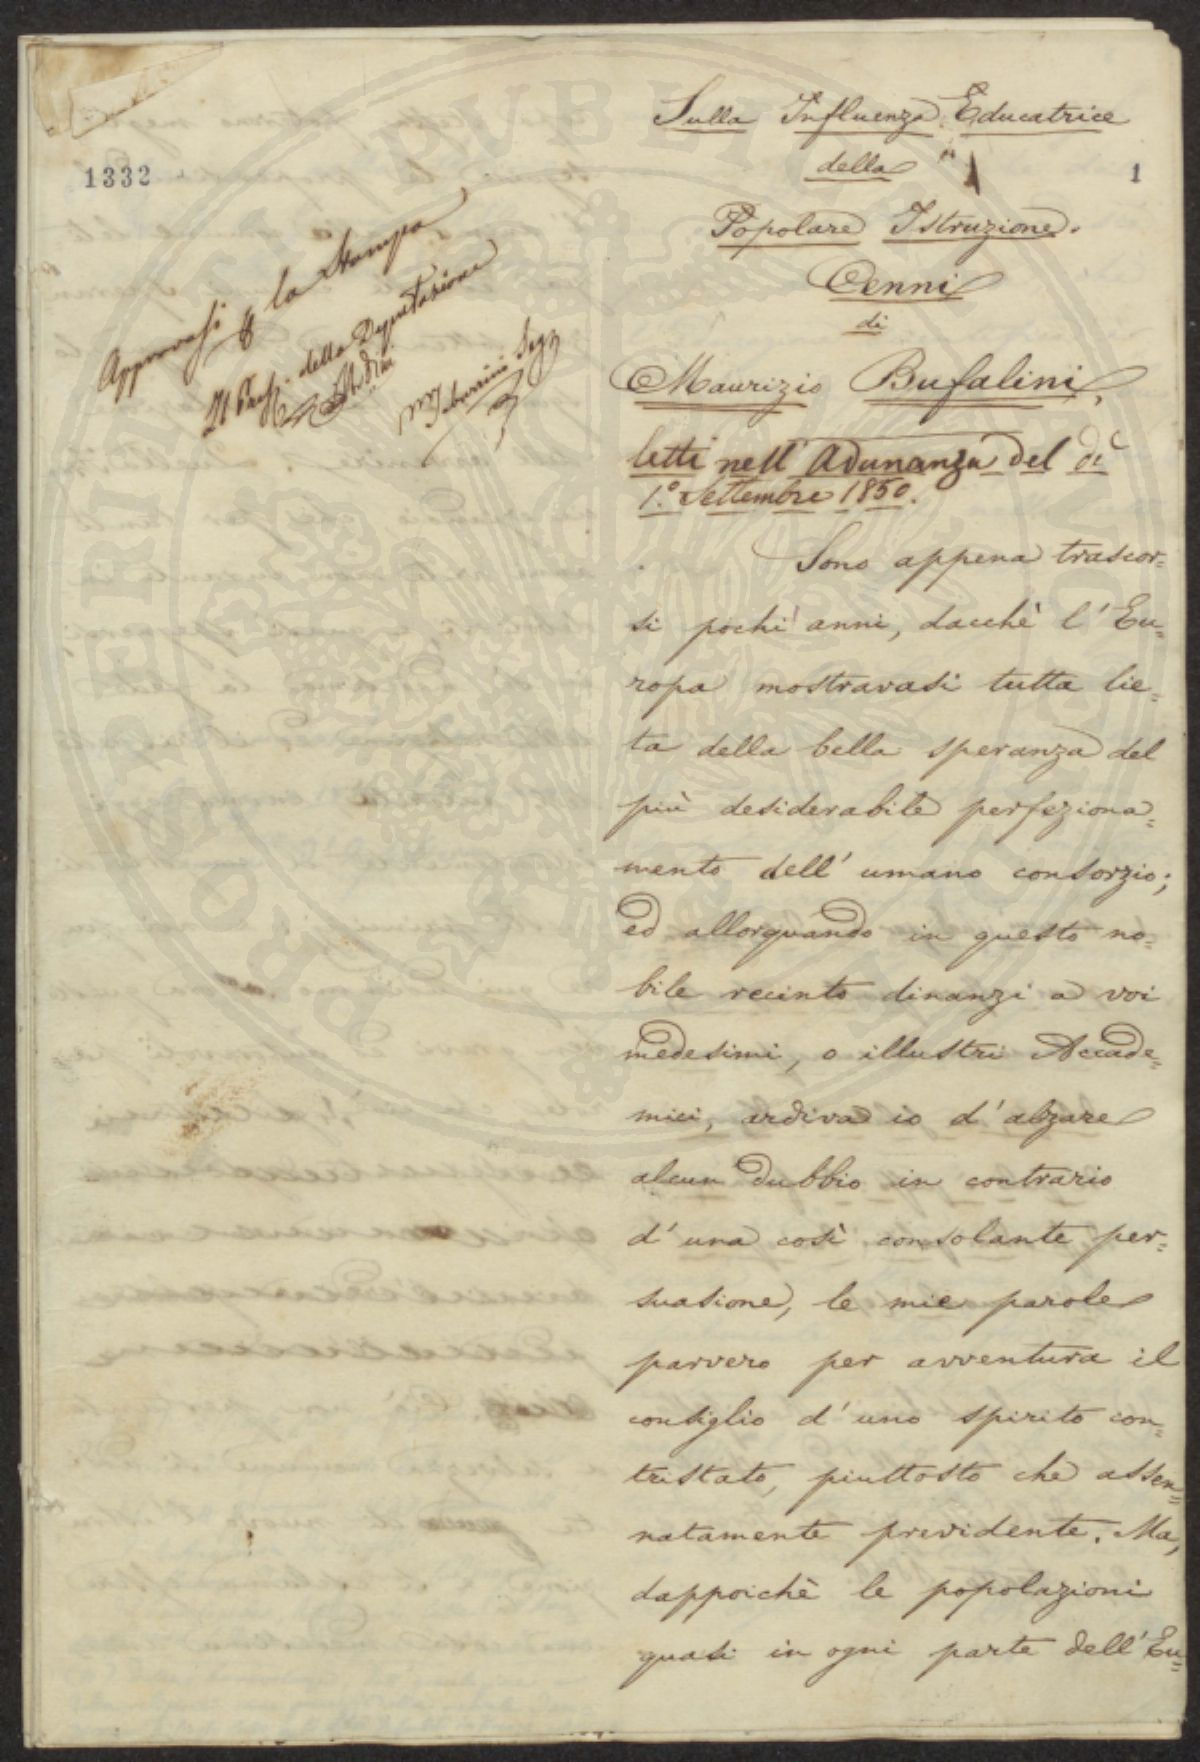 Sulla Influenza Educatrice
della
1332
1
Popolare Istruzione.
Cenni
di
Maurizio Bufalini,
letti nell'Adunanza del dì
1.º Settembre 1850.
Approvasi p la Stampa
Il Presi. della Deputazione
M Tabarrini Segr
Sono appena trascor=
si pochi anni, dacchè l'Eu=
ropa mostravasi tutta lie=
ta della bella speranza del
più desiderabile perfeziona=
mento dell'umano consorzio;
ed allorquando in questo no=
bile recinto dinanzi a voi
medesimi, o illustri Accade=
mici, ardiva io d'alzare
alcun dubbio in contrario
d'una così consolante per=
suasione, le mie parole
parvero per avventura il
consiglio d'uno spirito con=
tristato, piuttosto che assen=
natamente previdente. Ma,
dappoichè le popolazioni
quasi in ogni parte dell'Eu=